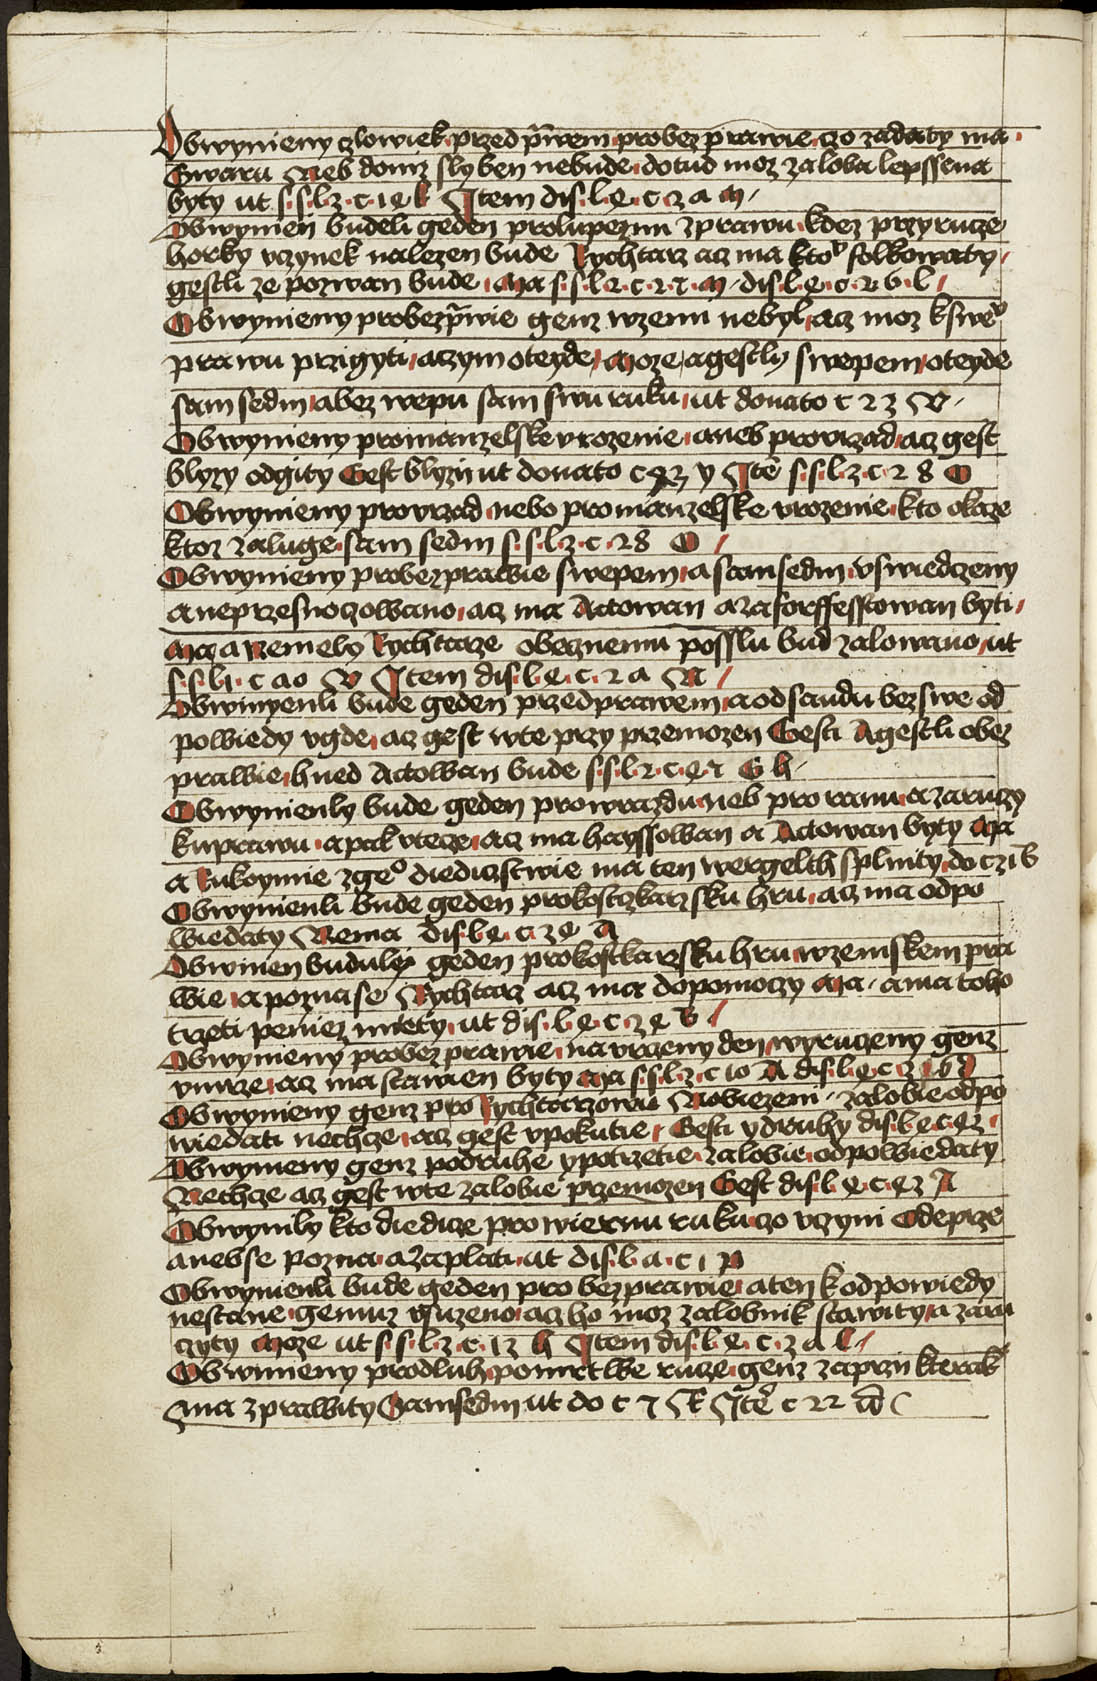 Obwynieny czlowiek przed p̃wem probez prawie czo zadaty ma
Gwaru Neb doniz slyben nebude dotud moz zaloba lepssena
byty ut s s l 2 c 1 e k Item dis l e c 2 a m
Obwynien budeli geden prolupeznu z prawu kdez przy rucze
horky vczynek nalezen bude Rychtarz acz ma folkowaty
gestli ze pozwan bude Ma s s l 2 c 2 7 m dis l e c 2 6 l
Obwynieny probezp̃wie genz wzemi nebyl acz moz kswe
prawu przigyti aczym oteyde Moze agestly swepem oteyde
sam sedm abez wepu sam swu ruku ut donato c 23
Obwynieny promanzelske vrozenie aneb provrzad acz gest
blyzy odgity Gest blyzii ut donato c y Itē s s l 2 c 28 O
Obwynieny provrzad nebo promanzelske vrozenie kto okaze
ktoz zaluge sam sedm s s l 2 c 28 O
Obwynieny probezprawie swepem a sam sedm vswiedczeny
aneprzesuoczowano acz ma Actowan aza forffesstowan byti
Ma a nemely Rychtarze obecznemu posslu bud zalowano ut
s s l 1 c a o Item dis l e c 2 a N
Obwinyenli bude geden przed prawem a od saudu bez swe od
powiedy vgde acz gest wte przy przemozen Gest Agestli obez
prawie hned Actowan bude s s l 2 c e G h
Obwynienly bude geden pro wrazdu neb pro ranu a zaruczy
kuprawu apak vtecze acz ma hayssowan a Actowan byty Ma
a Rukoymie zge⁰ diedicztwie ma ten wergelth splnity do c
Obwynienli bude geden prokostczkarzsku hru acz ma odpo
wiedaty Nema dis l e c z e A
Obwinen buduly geden prokostkarzsku hru wzemskem pra
wie apozna se Rychtarz acz ma dopomoczy Ma ama toho
trzeti peniez miety ut dis l e c z e B
Obwynieny probez prawie na vrczeny den wyruczeny genz
vmrze acz ma stawien byty Ma s s l 2 c 10 A dis l e c
Obwynieny genz pro Rychtarzowu Nobiezem zalobie odpo
wiedati nechcze acz gest vpokutie Gest y druhy dis l e c
Obwynieny genz podruhe ypotrzetie zalobie odpowiedaty
Nechcze acz gest wte zalobie przemozen Gest dis l e c A
Obwynily kto diedicze pro wiernu ruku czo vczyni Odeprze
anebse pozna azaplati ut dis l a c 1
Obwynienli bude geden pro bezprawie a ten kodpowiedy
nestane gemuz vluzeno acz ho moz zalobnik stawity a zaru
czyty Moze ut s s l 2 c 12 h Item dis l e c 2 a l
Obwynieny prodluh pomrtwe rucze genz zaprzii kterak
Ma zprawity Samsedm ut do c 7 Itē c 22